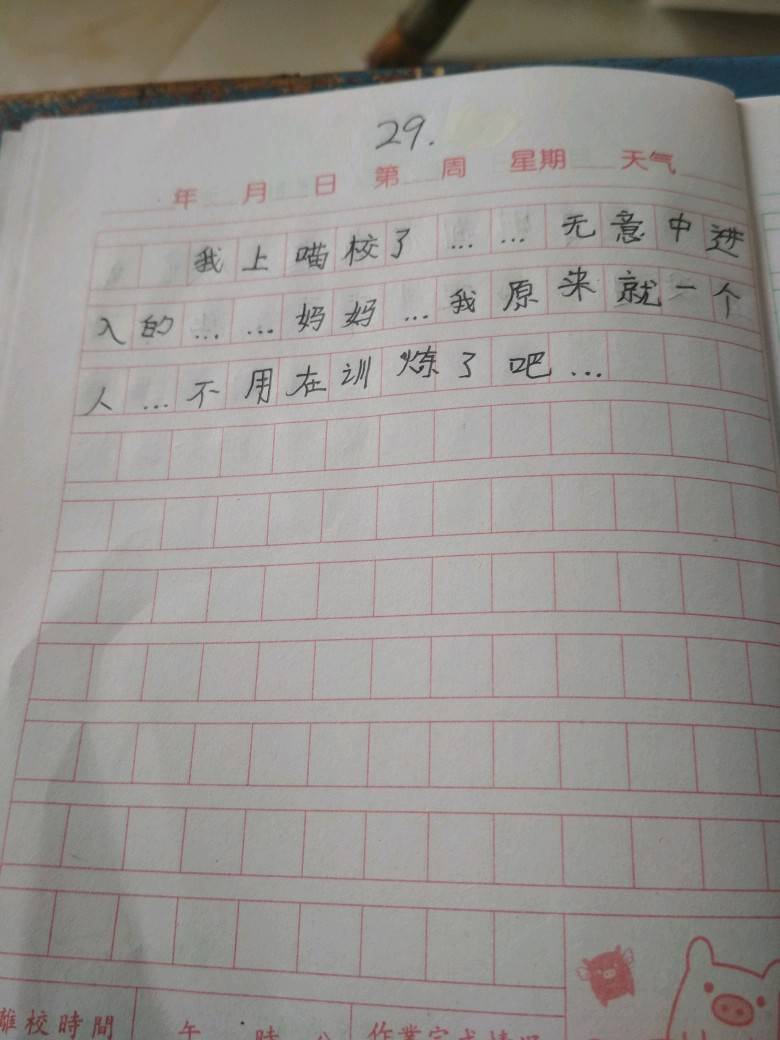 29.
年 月 日 第 周 星期 天气
我上喵校了……无意中进
入的……妈妈…我原来就一个
人…不用在训炼了吧…
離校時間 午 時